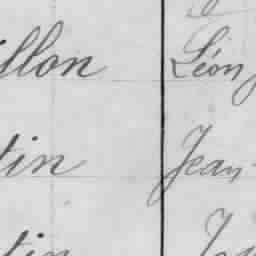 illon Léon
tin Jean-
tin